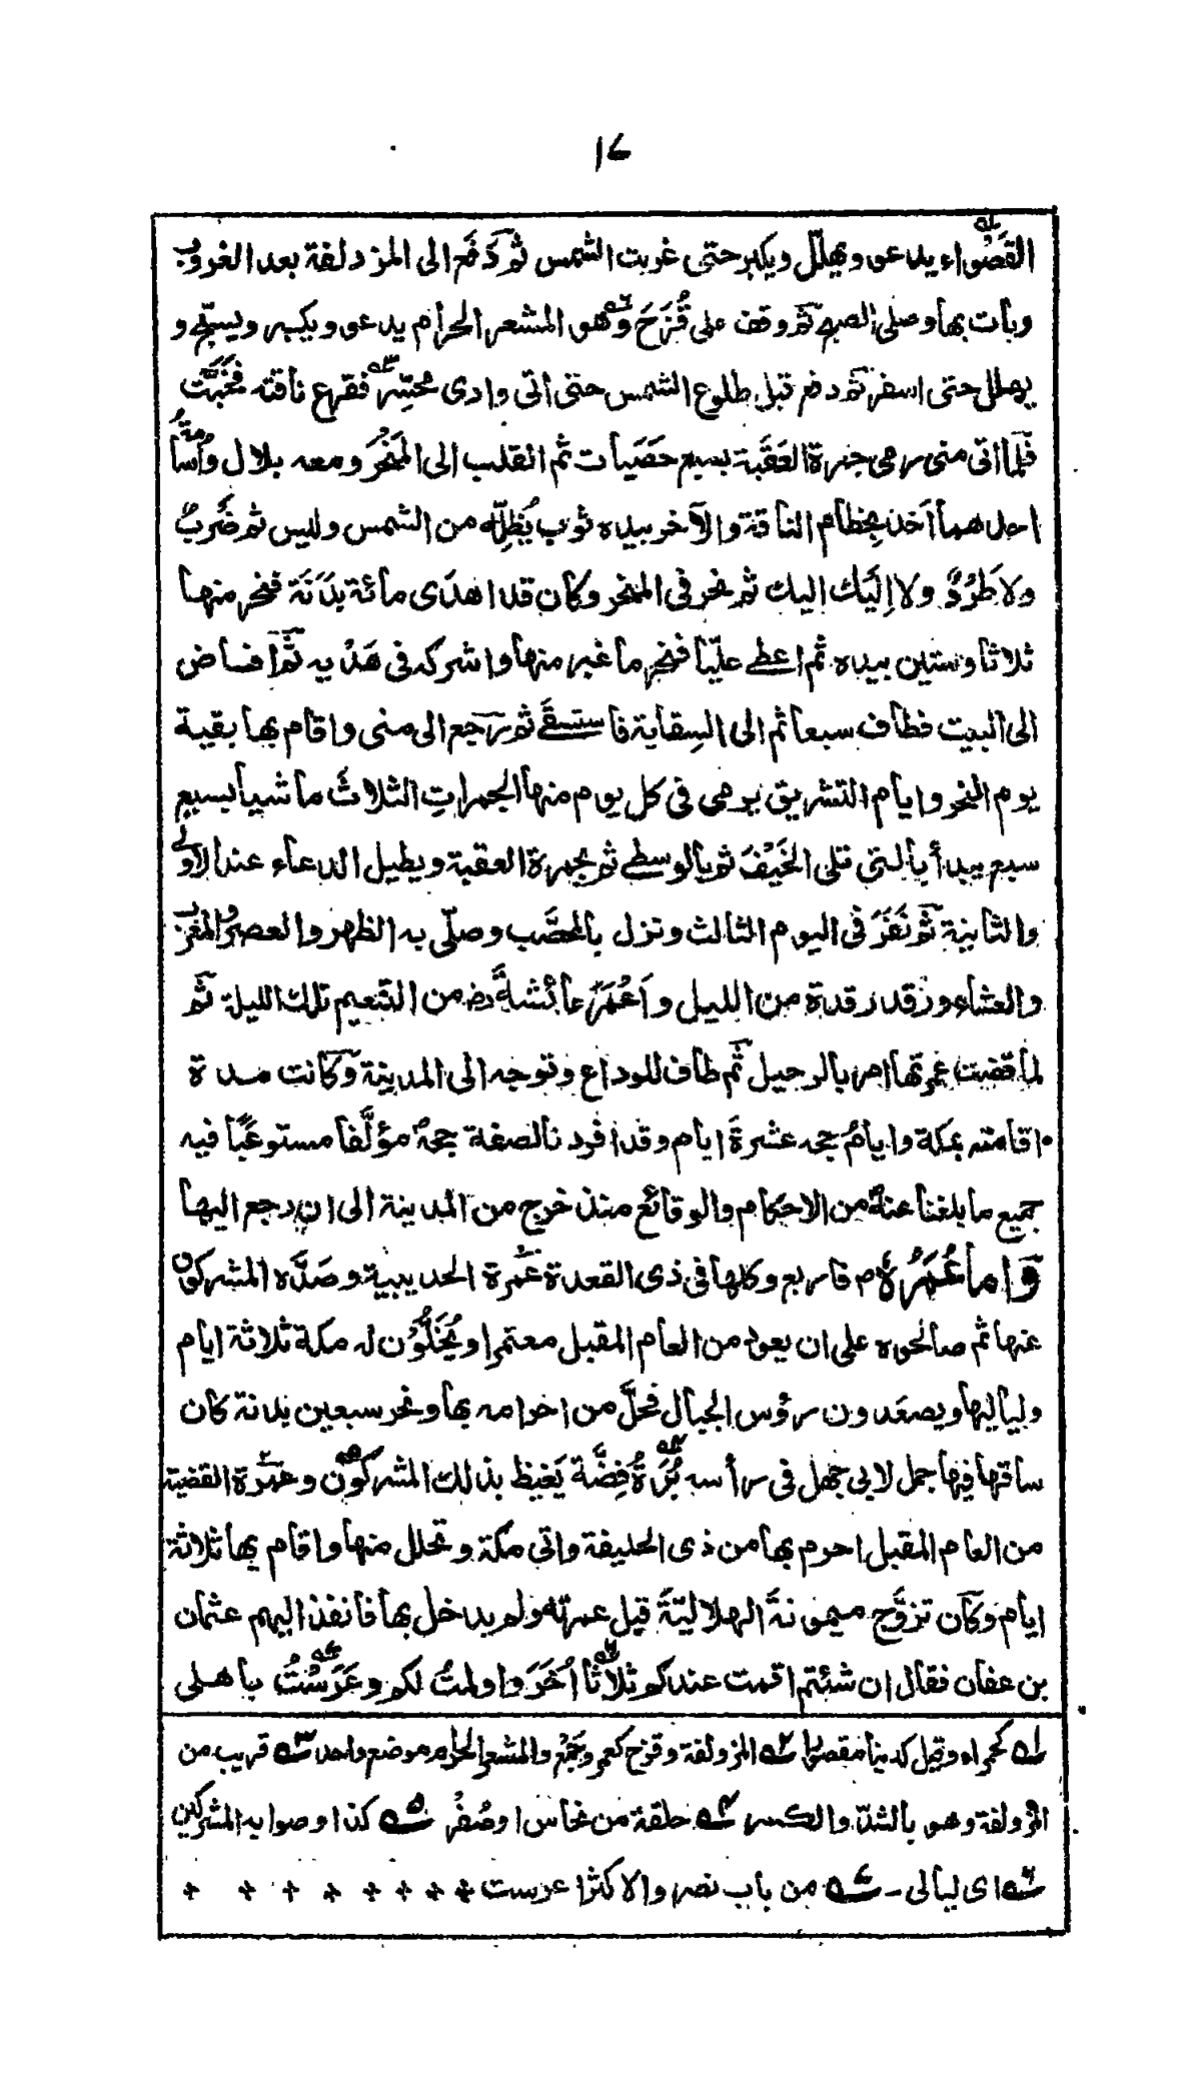 ١٧
القَصْواء يدعو ويهلّل ويكبر حتى غربت الشمس ثم دَفَع الى المزدلفة بعد الغروب
وبات بها وصلى الصبح ثم وقف على قُزَحَ وهو المشعر الحرام يدعو ويكبر ويسبّح و
يهلل حتى اسفر ثم دفع قبل طلوع الشمس حتى اتى وادى مُحسِّر فقرع ناقته فخَبَّت
فلمّا اتى منى رمى جمرة العَقَبَة بسبع حَصَيات ثم انقلب الى المَنْحَر ومعه بلال واُسامة
احدهما آخذ بِخطام الناقة والآخر بيده ثوب يُظِلّه من الشمس وليس ثم ضَربٌ
ولا طَرْدٌ ولا اِلَيك اليك ثم نحر فى المنحر وكان قد اهدَى مائة بَدَنَة فنحر منها
ثلاثا وستين بيده ثم اعطى عليّا فنحر ما غبر منها واشركه فى هَدْيه ثم افاض
الى البيت فطاف سبعا ثم الى السِقاية فاستسقَى ثم رجع الى منى واقام بها بقية
يوم النحر وايام التشريق يرمى فى كل يوم منها الجمراتِ الثلاثَ ماشيا بسبع
سبع يبدأ بالتى تلى الخَيْفَ ثم بالوسطى ثم بجمرة العقبة ويطيل الدعاء عند الاولى
والثانية ثم نَفَرَ فى اليوم الثالث ونزل بالمحصَّب وصلّى به الظهر والعصر والمغرب
والعشاء ورقد رقدة من الليل واَعْمَرَ عائشةَ رض من التنعيم تلك الليلة ثم
لما قضت عمرتها امر بالرحيل ثم طاف للوداع وتوجه الى المدينة وكانت مدة
اقامته بمكة وايامُ حجه عشرةَ ايام وقد افردنا لصفة حجهٖ مؤلَّفا مستوعَبًا فيه
جميع ما بلغنا عنهُ من الاحكام والوقائع منذ خرج من المدينة الى ان رجع اليها
وَامّا عُمَرُهُ م فاربع وكلها فى ذى القعدة عُمْرة الحديبية وصَدَّه المشركون
عنها ثم صالحوه على ان يعود من العام المقبل معتمرا ويُخَلُّوْن له مكة ثلاثة ايام
ولياليها ويصعَدون رؤس الجبال فحلَّ من احرامه بها ونحر سبعين بدنة كان
ساقها فيها جمل لابى جهل فى رأسه بُرَةُ فِضَّة يَغيظ بذلك المشركون وعمرة القضية
من العام المقبل احرم بها من ذى الحليفة واتى مكة وتحلل منها واقام بها ثلاثة
ايام وكان تزوَّج ميمونةَ الهلاليّةَ قبل عمرته ولم يدخل بها فانفذ اليهم عثمان
بن عفان فقال ان شئتم اقمت عندكم ثلاثًا اُخَرَ واولمتُ لكم وعَرَسْتُ باهلى
١ه كحمراء وقيل كدنيا مقصورا ٢ه المزدلفة وقزح كعمر وجَمْع والمشعر الحرام موضع واحد ٣ه قريب من
المزدلفة وهو بالشدّ والكسر ٤ه حلقة من نحاس او صُفْر ٥ه كذا وصوابه المشركين
٦ه اى ليالى ـ ٧ه من باب نصر والاكثر اعرست